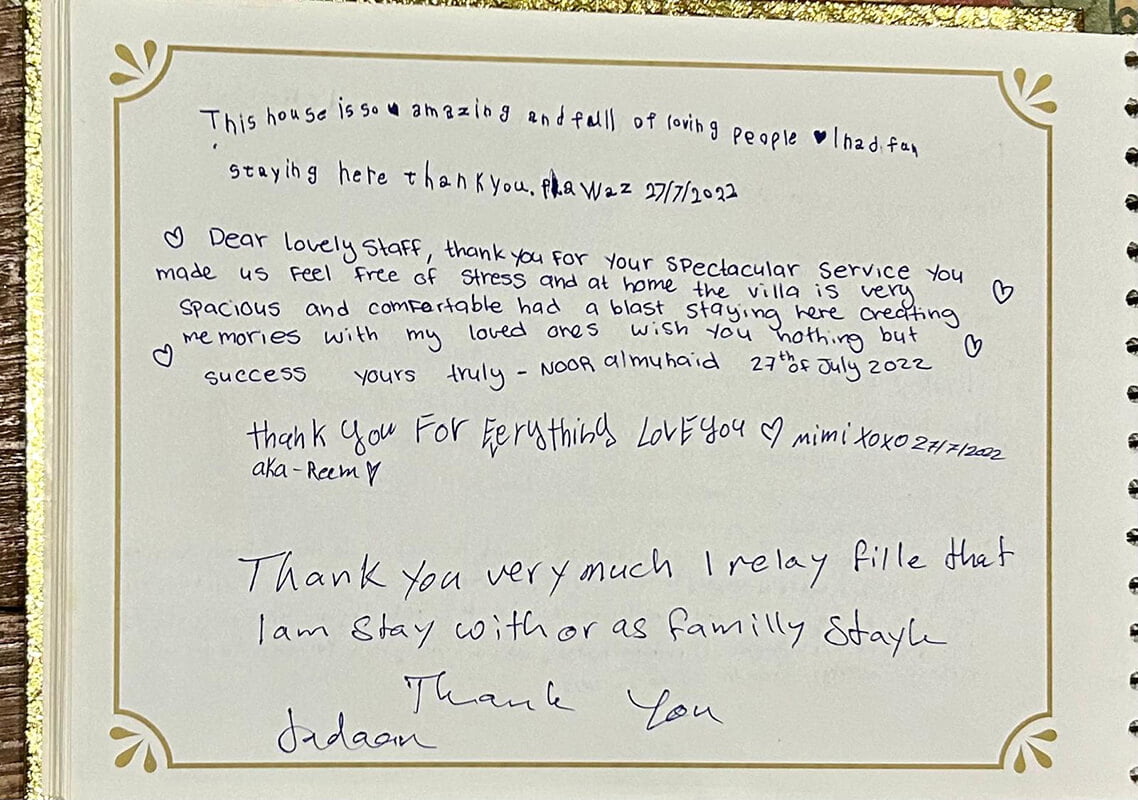 This house is so amazing and full of loving people ♥ I had fun
staying here thank you. Fawaz 27/7/2022
♡ Dear lovely staff, thank you for your spectacular service you
made us feel free of stress and at home the villa is very
spacious and comfortable had a blast staying here creating
memories with my loved ones wish you nothing but
success yours truly - NOOR almuhaid 27th of July 2022
thank you For Everything LovE you ♡ mimi xoxo 27/7/2022
aka - Reem ♡
Thank you very much I relay fille that
I am stay with or as familly Stayle
Thank You
Jadaan